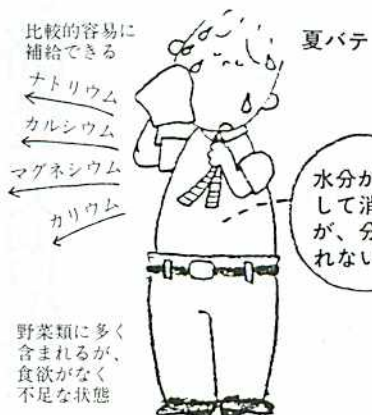 比較的容易に
補給できる
ナトリウム
カルシウム
マグネシウム
カリウム
野菜類に多く
含まれるが、
食欲がなく
不足な状態
夏バテ
水分が
して消
が、分
れない